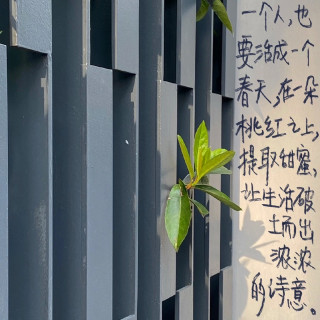 一个人,也
要活成一个
春天,在一朵
桃红之上,
提取甜蜜,
让生活破
土而出
浓浓
的诗意。